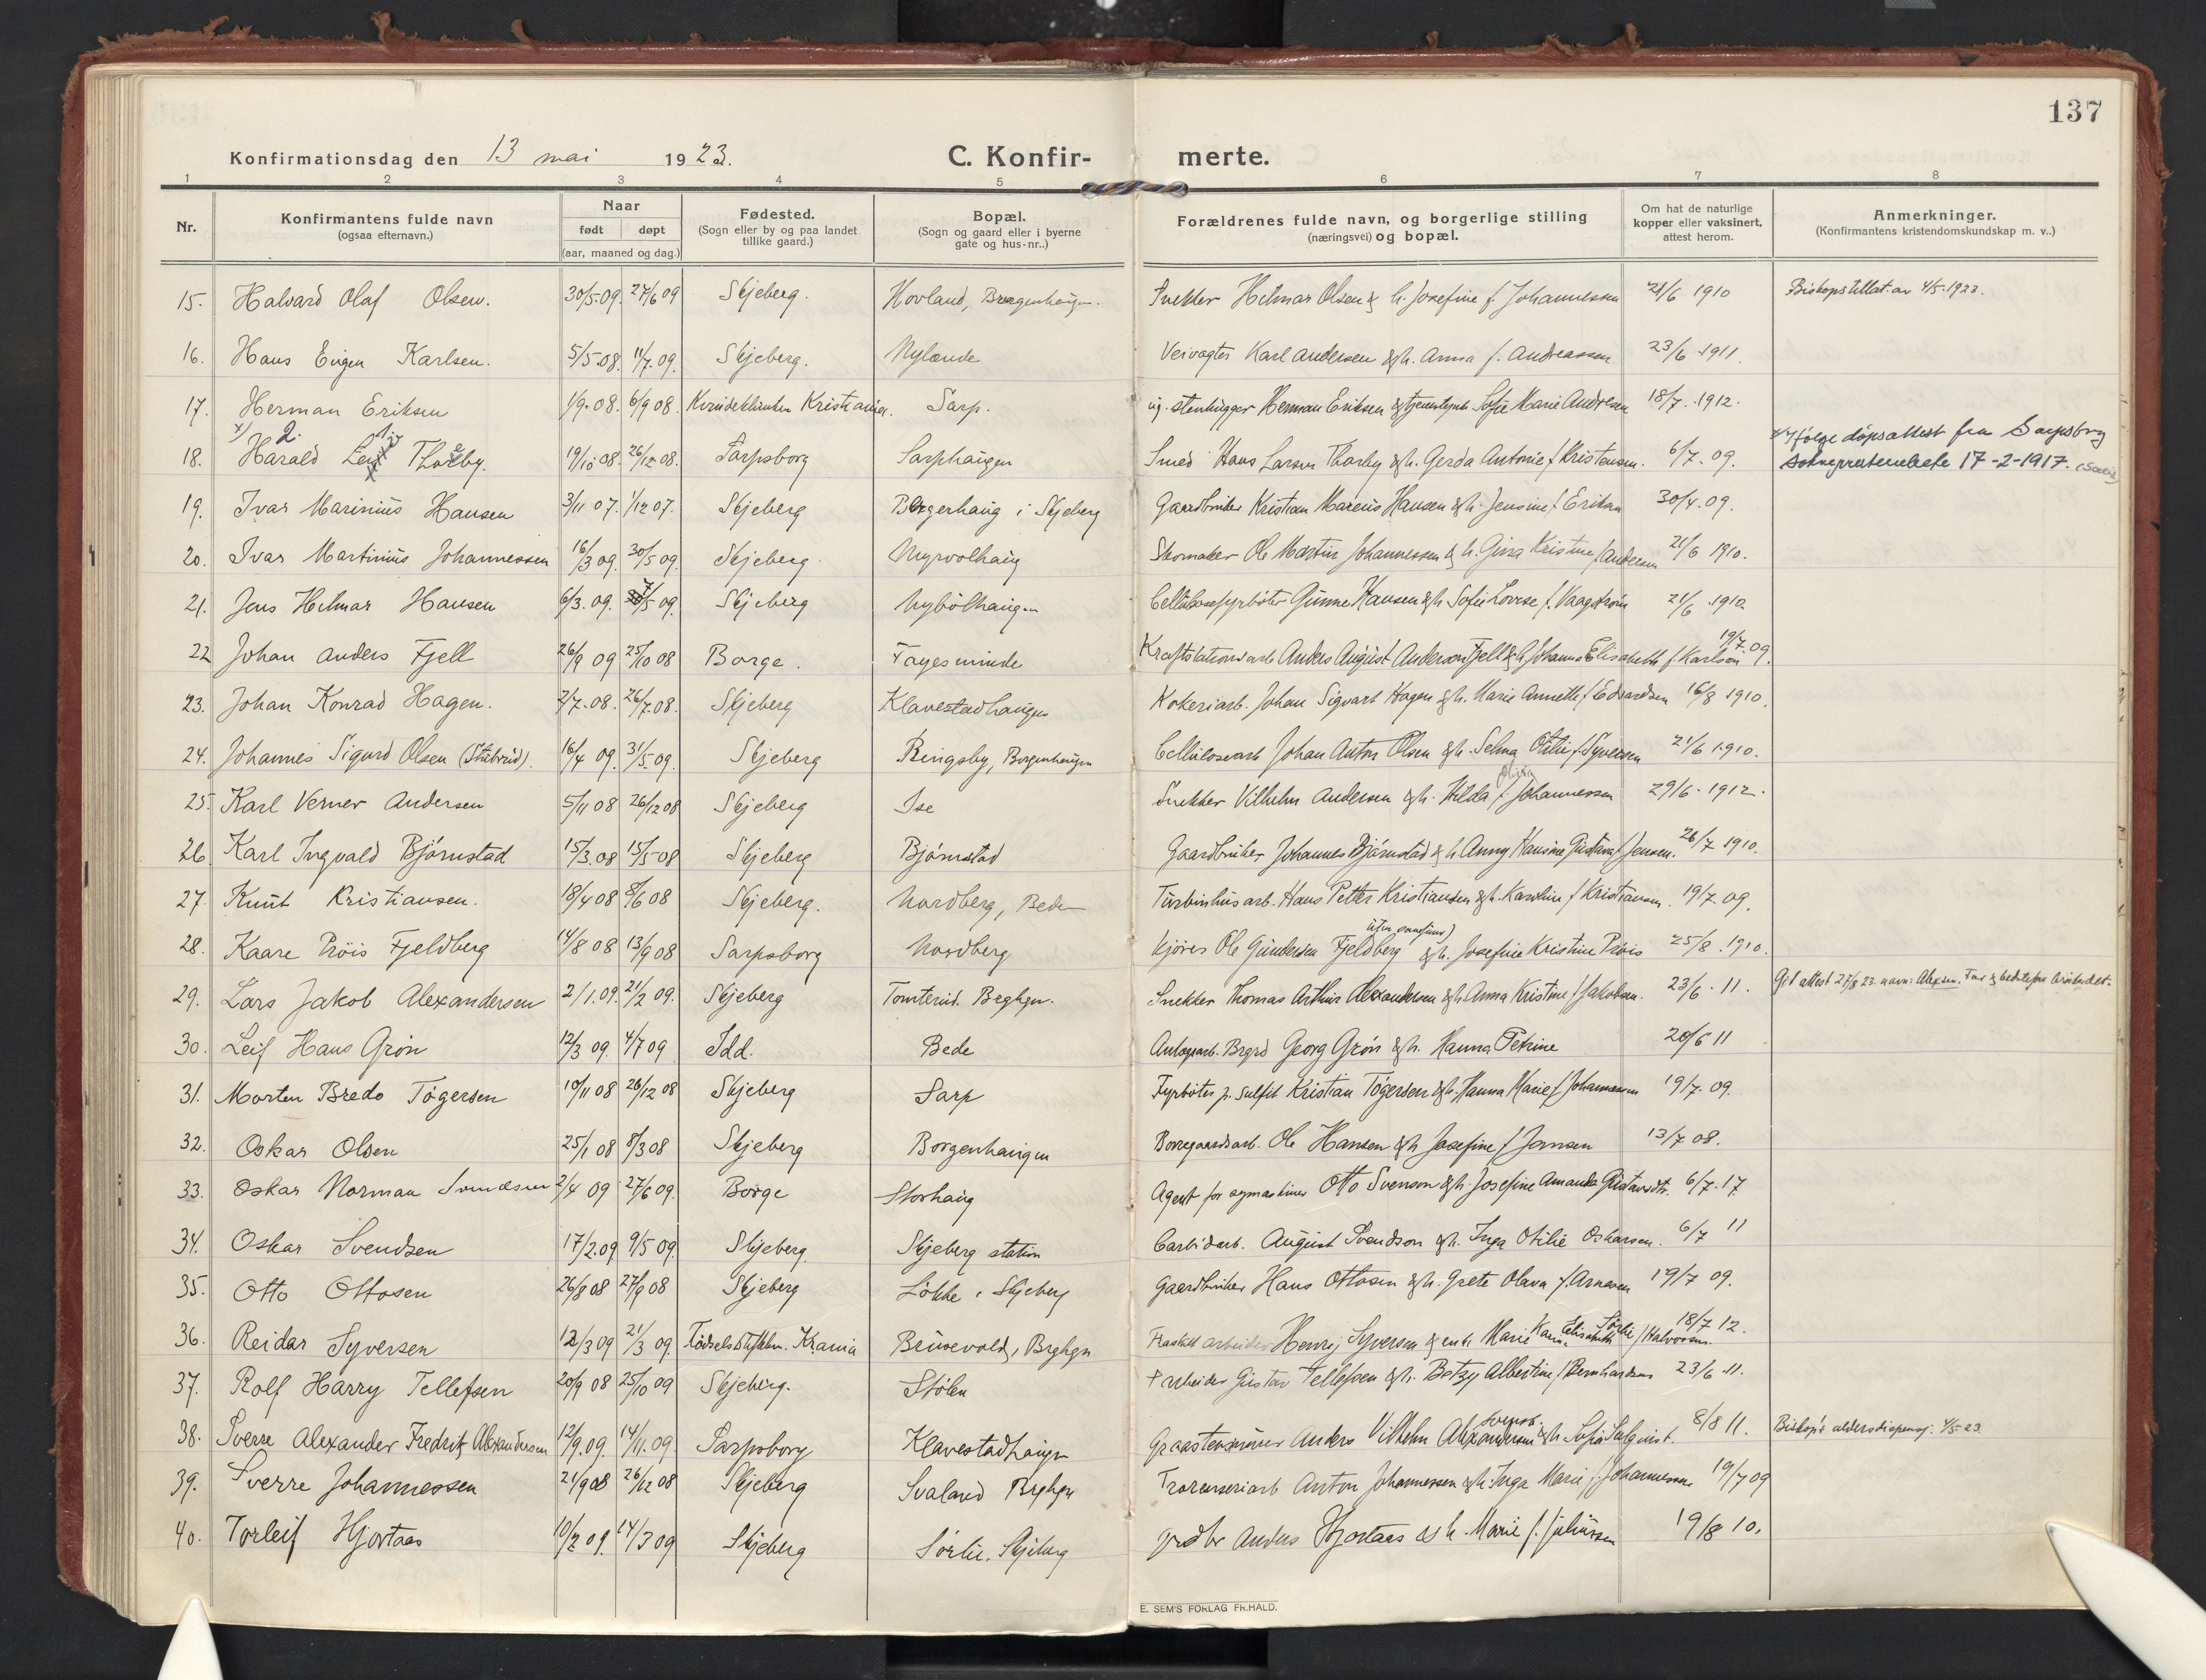 137
Konfirmationsdag den 13 mai 1923. C. Konfir- merte.
1 2 3 4 5 6 7 8
Nr. Konfirmantens fulde navn (ogsaa efternavn.) Naar født døpt (aar, maaned og dag.) Fødested. (Sogn eller by og paa landet tillike gaard.) Bopæl. (Sogn og gaard eller i byerne gate og hus-nr..) Forældrenes fulde navn, og borgerlige stilling (næringsvei) og bopæl. Om hat de naturlige kopper eller vaksinert, attest herom. Anmerkninger. (Konfirmantens kristendomskundskap m. v..)
15. Halvard Olaf Olsen. 30/5-09. 27/6 09 Skjeberg. Hovland, Borgenhaugen. Snekker Hilmar Olsen & h. Josefine f. Johannessen 21/6 1910 Biskops tillat. av 4/5-1923.
16. Hans Eugen Karlsen. 5/5-08. 11/7-09. Skjeberg. Nylende Veivogter Karl Andersen & h. Anna f. Andreassen 23/6 1911.
17. Herman Eriksen 1/9-08. 6/9 08. Kvindeklinken Kristiania. Sarp. ug. stenhugger Herman Eriksen & tjenestepike Sofie Marie Andresen 18/7. 1912.
18. Harald Thorby. 19/10 08. 26/12 08. Sarpsborg Sarphaugen Smed Hans Larsen Thorby & h. Gerda Antonie f. Kristensen. 6/7. 09. ifølge dåpsattest fra Sarpsborg sokneprestembete 17-2-1917.
19. Ivar Marinius Hansen 3/11 07. 1/12 07. Skjeberg Borgerhaug i Skjeberg Gaardbruker Kristian Mareus Hansen & h. Jensine f. Eriksen 30/4. 09.
20. Ivar Martinius Johannessen 16/3 09. 30/5 09. Skjeberg Myrvolhaug Skomaker Ole Martin Johannessen & h. Gina Kristine f. Andersen 21/6 1910.
21. Jens Hilmar Hansen 6/3. 09. 7/5 09. Skjeberg Nybølhaugen Cellulosefyrbøter Gunne Hansen & h. Sofie Lovise f. Vaagstrøm 21/6 1910.
22 Johan Anders Fjell 26/9 09 25/10 08 Borge. Fayesminde Kraftstationsarb Anders August Anderson Fjell & h. Johanne Elisabeth f. Karlson 19/7 09.
23. Johan Konrad Hagen. 2/7-08. 26/7.08. Skjeberg Klavestadhaugen Kokeriarb. Johan Sigvart Hagen & h. Marie Annette f. Edvardsen 16/8 1910.
24. Johannes Sigurd Olsen (Stubrud). 16/4 09. 31/5-09. Skjeberg Ringsby, Borgenhaugen Cellulosearb Johan Anton Olsen & h. Selma Otilie f. Syversen 21/6 1910.
25. Karl Verner Andersen 5/11 08 26/12 08 Skjeberg Ise Snekker Vilhelm Andersen & h. Hilda f. Johannessen 29/6-1912.
26. Karl Ingvald Bjørnstad 15/3.08 15/5-08 Skjeberg Bjørnstad Gaardbruker Johannes Bjørnstad & h. Anny Hansine Gustava f. Jensen. 26/7 1910.
27. Knut Kristiansen. 18/4 08 8/6 08 Skjeberg. Nordberg, Bede Turbinhusarb. Hans Petter Kristiansen & h. Karoline f. Kristiansen. 19/7. 09.
28. Kaare Prøis Fjeldberg 14/8 08 13/9 08 Sarpsborg Nordberg Kjører Ole Gundersen Fjeldberg & h. Josefine Kristine Prøis 25/8. 1910.
29. Lars Jakob Alexandersen 2/1. 09. 21/2 09. Skjeberg Tomterud. Brghgn. Snekker Thomas Arthur Alexandersen & h. Anna Kristine f. Jakobsen. 23/6. 11. Git attest 27/8 23. navn: Alexsen.
30. Leif Hans Grøn 12/3 09. 4/7 09 Idd. Bede Anlegsarb. Brgrd Georg Grøn & h. Hanna Petrine 20/6 11
31. Morten Bredo Tøgersen 10/11 08 26/12 08 Skjeberg Sarp Fyrbøter p. Sulfit Kristian Tøgersen & h. Hanna Marie f. Johannessen 19/7. 09.
32. Oskar Olsen 25/1 08 8/3 08 Skjeberg Borgenhaugen Borregaardsarb. Ole Hansen & h. Josefine f. Jansen 13/7 08.
33. Oskar Norman Svendsen 2/4 09 27/6 09. Borge Storhaug Agent for symaskiner Otto Svenson & h. Josefine Amanda Gustavsdtr. 6/7. 17.
34. Oskar Svendsen 17/2.09 9/5 09. Skjeberg. Skjeberg station Carbidarb. August Svendson & h. Inga Otilie Oskarsen. 6/7 11
35. Otto Ottosen 26/8 08 27/9 08 Skjeberg Løkke i Skjeberg Gaardbruker Hans Ottosen & h. Grete Olava f. Arnesen 19/7 09.
36. Reidar Syversen 12/3 09 21/3 09. Fødselsstiftelsen. Krania Bruvold, Brghgn Fraskilt arbeider Henry Syversen & enke Marie Karen Elisabeth Sørlie f. Halvorsen. 18/7 12.
37. Rolf Harry Tellefsen 20/9 08 25/10 09 Skjeberg. Stølen Arbeider Gustav Tellefsen & h. Betzy Albertine f. Bernhardsen 23/6. 11.
38. Sverre Alexander Fredrik Alexandersen 12/9. 09. 14/11. 09. Sarpsborg Klavestadhaugen Graastensmurer Anders Vilhelm Alexandersen & h. Sofie Salqvist. 8/8 11. Biskop's aldersdispens. 4/5-23.
39. Sverre Johannessen 21/9 08 26/12 08 Skjeberg Svaland Brghgn Anton Johannessen & h. Inga Marie f. Johannessen 19/7 09
40. Torleif Hjortaas 10/2 09. 14/3 09 Skjeberg Sørlie. Skjeberg Anders Hjortaas & h. Marie f. Juliussen 19/8 10.
E. SEM'S FORLAG FR.HALD.